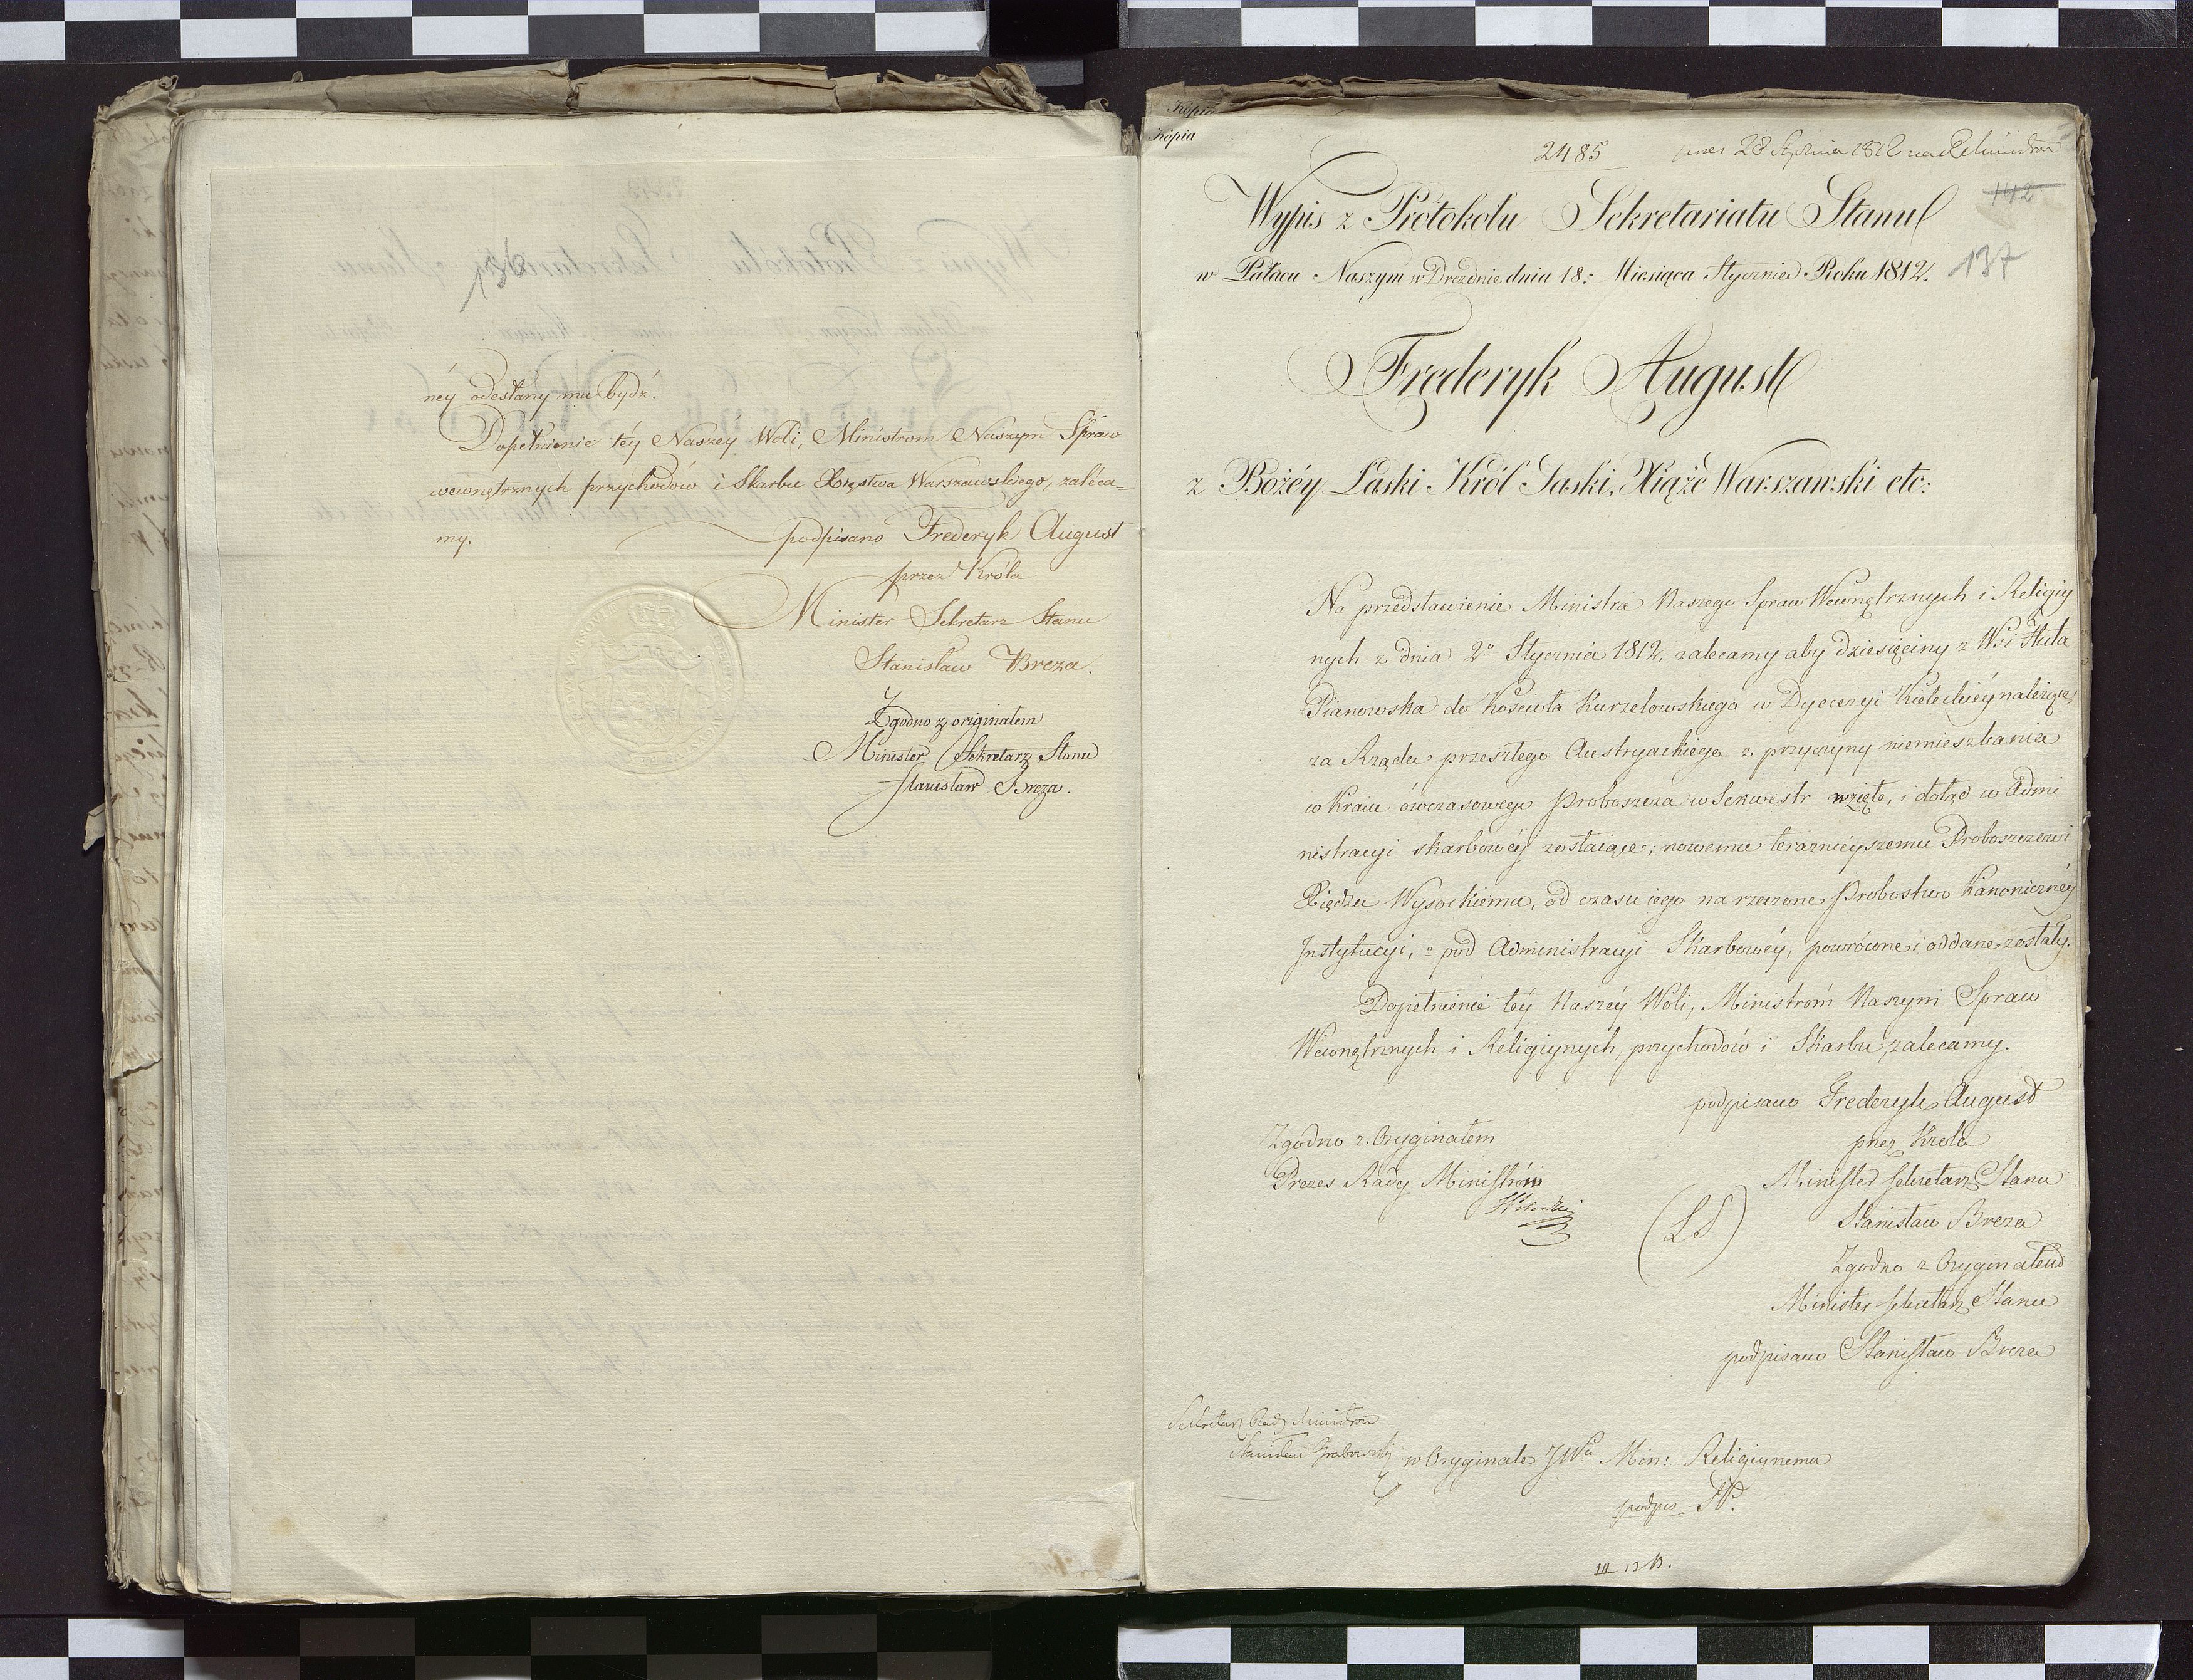 136
néy odesłany ma bydź.
Dopełnienie téy Naszéy Woli, Ministrom Naszym Spraw
wewnętrznych przychodów i Skarbu Xięstwa Warszawskiego, zaléca-
my.
podpisano Frederyk August
przez Króla
Minister Sekretarz Stanu
Stanisław Breza.
Zgodno z originałem
Minister Sekretarz Stanu
Stanisław Breza.
Kopia
Kopia
2485
28 Stycznia 1812
142
Wypis z Protokołu Sekretariatu Stanu
w Pałacu Naszym w Dreznie dnia 18: Miesiąca Stycznia Roku 1812.
137
Frederyk August
z Bożéy Łaski Król Saski, Xiąże Warszawski etc:
Na przedstawienie Ministra Naszego Spraw Wewnętrznych i Religiy
nych z dnia 2º Stycznia 1812, zalecamy aby dziesięciny z Wsi Huta
Pianowska do Kościoła Kurzelowskiego w Dyecezyi Kieleckiéy należące,
za Rządu przeszłego Austryackiego z przyczyny niemieszkania
w Kraiu ówczasowego Proboszcza w Sekwestr wzięte, i dotąd w Admi
nistracyi skarbowéy zostaiące; nowemu teraznieyszemu Proboszczowi
Xiędzu Wysockiemu, od czasu iego na rzeczone Probostwo Kanonicznéy
Instytucyi, z pod Administracyi Skarbowéy, powrócone i oddane zostały.
Dopełnienie téy Naszéy Woli, Ministrom Naszym Spraw
Wewnętrznych i Religiynych, przychodów i Skarbu, zalecamy.
podpisano Frederyk August
przez Króla
Zgodno z Oryginałem
Prezes Rady Ministrów
Minister Sekretarz Stanu
(LS)
Stanisław Breza
Zgodno z Oryginałem
Minister Sekretarz Stanu
podpisano Stanisław Breza
Sekretarz Rady Ministrów
Stanisław Grabowski
w Oryginale JWu Min: Religiynemu
podpis
III 12 B.